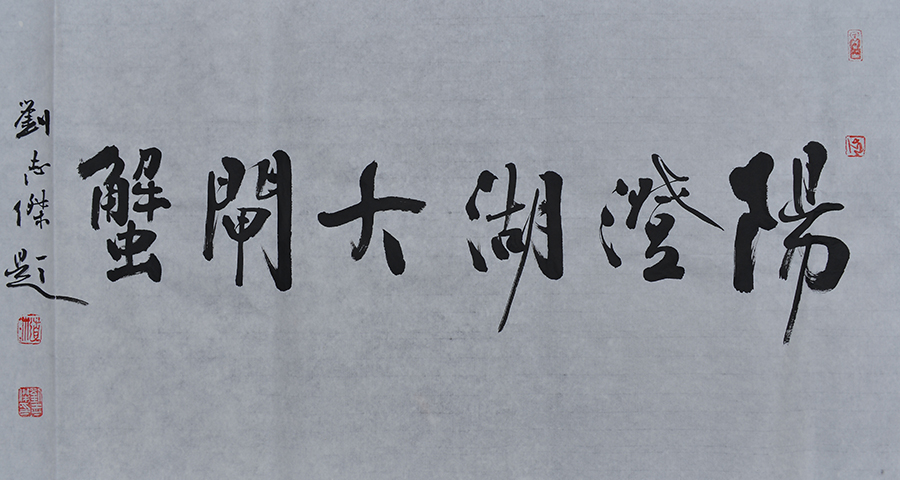 陽澄湖大閘蟹
劉志傑題